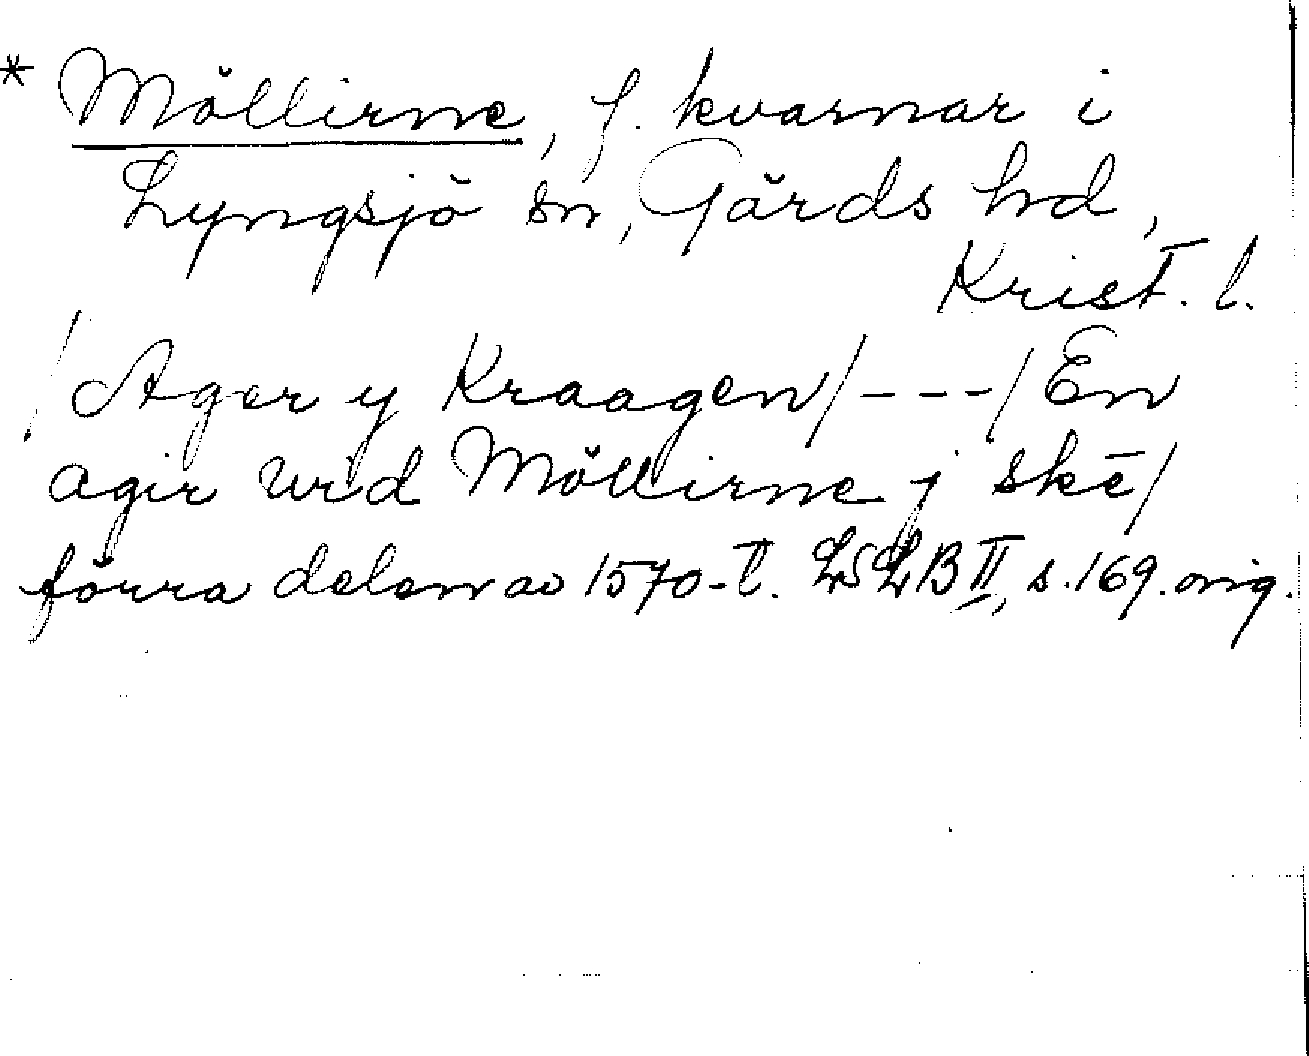 * Möllirne, f. kvarnar i
Lyngsjö sn, Gärds hd,
Krist. l.
/Ager y Kraagen/---/En
agir wid Möllirne j skē/
förra delen av 1570-t. LSLB II, s. 169. orig.